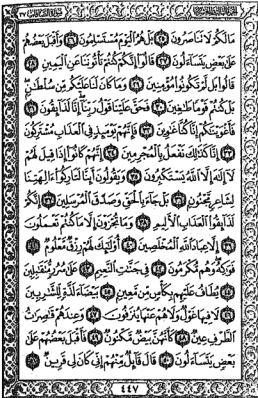 مَا لَكُمْ لَا تَنَاصَرُونَ ۝٢٥ بَلْ هُمُ الْيَوْمَ مُسْتَسْلِمُونَ ۝٢٦ وَأَقْبَلَ بَعْضُهُمْ
عَلَىٰ بَعْضٍ يَتَسَاءَلُونَ ۝٢٧ قَالُوا إِنَّكُمْ كُنْتُمْ تَأْتُونَنَا عَنِ الْيَمِينِ ۝٢٨
قَالُوا بَلْ لَمْ تَكُونُوا مُؤْمِنِينَ ۝٢٩ وَمَا كَانَ لَنَا عَلَيْكُمْ مِنْ سُلْطَانٍ
بَلْ كُنْتُمْ قَوْمًا طَاغِينَ ۝٣٠ فَحَقَّ عَلَيْنَا قَوْلُ رَبِّنَا إِنَّا لَذَائِقُونَ ۝٣١
فَأَغْوَيْنَاكُمْ إِنَّا كُنَّا غَاوِينَ ۝٣٢ فَإِنَّهُمْ يَوْمَئِذٍ فِي الْعَذَابِ مُشْتَرِكُونَ
۝٣٣ إِنَّا كَذَٰلِكَ نَفْعَلُ بِالْمُجْرِمِينَ ۝٣٤ إِنَّهُمْ كَانُوا إِذَا قِيلَ لَهُمْ
لَا إِلَٰهَ إِلَّا اللَّهُ يَسْتَكْبِرُونَ ۝٣٥ وَيَقُولُونَ أَئِنَّا لَتَارِكُو آلِهَتِنَا
لِشَاعِرٍ مَجْنُونٍ ۝٣٦ بَلْ جَاءَ بِالْحَقِّ وَصَدَّقَ الْمُرْسَلِينَ ۝٣٧ إِنَّكُمْ
لَذَائِقُو الْعَذَابِ الْأَلِيمِ ۝٣٨ وَمَا تُجْزَوْنَ إِلَّا مَا كُنْتُمْ تَعْمَلُونَ
۝٣٩ إِلَّا عِبَادَ اللَّهِ الْمُخْلَصِينَ ۝٤٠ أُولَٰئِكَ لَهُمْ رِزْقٌ مَعْلُومٌ ۝٤١
فَوَاكِهُ وَهُمْ مُكْرَمُونَ ۝٤٢ فِي جَنَّاتِ النَّعِيمِ ۝٤٣ عَلَىٰ سُرُرٍ مُتَقَابِلِينَ
۝٤٤ يُطَافُ عَلَيْهِمْ بِكَأْسٍ مِنْ مَعِينٍ ۝٤٥ بَيْضَاءَ لَذَّةٍ لِلشَّارِبِينَ
۝٤٦ لَا فِيهَا غَوْلٌ وَلَا هُمْ عَنْهَا يُنْزَفُونَ ۝٤٧ وَعِنْدَهُمْ قَاصِرَاتُ
الطَّرْفِ عِينٌ ۝٤٨ كَأَنَّهُنَّ بَيْضٌ مَكْنُونٌ ۝٤٩ فَأَقْبَلَ بَعْضُهُمْ عَلَىٰ
بَعْضٍ يَتَسَاءَلُونَ ۝٥٠ قَالَ قَائِلٌ مِنْهُمْ إِنِّي كَانَ لِي قَرِينٌ ۝٥١
٤٤٧